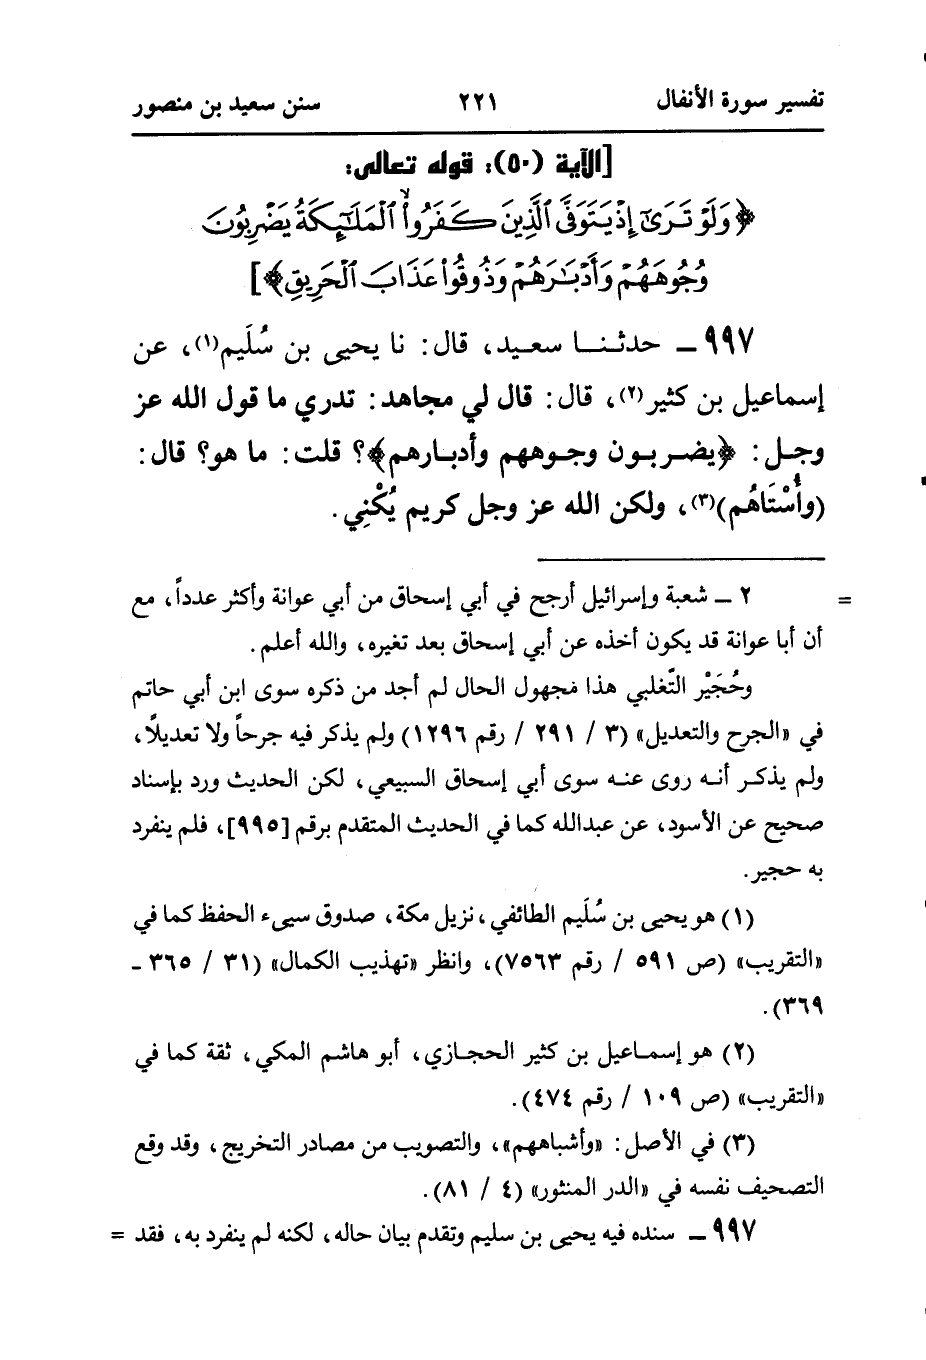 تفسير سورة الأنفال ٢٢١ سنن سعيد بن منصور
[الآية (٥٠): قوله تعالى:
﴿وَلَوْ تَرَىٰ إِذْ يَتَوَفَّى ٱلَّذِينَ كَفَرُوا۟ ۙ ٱلْمَلَٰٓئِكَةُ يَضْرِبُونَ
وُجُوهَهُمْ وَأَدْبَٰرَهُمْ وَذُوقُوا۟ عَذَابَ ٱلْحَرِيقِ﴾]
٩٩٧ ـ حدثنا سعيد، قال: نا يحيى بن سُلَيم(١)، عن
إسماعيل بن كثير(٢)، قال: قال لي مجاهد: تدري ما قول الله عز
وجل: ﴿يضربون وجوههم وأدبارهم﴾؟ قلت: ما هو؟ قال:
(وأُسْتَاهُم)(٣)، ولكن الله عز وجل كريم يُكْنِي.
= ٢ ـ شعبة وإسرائيل أرجح في أبي إسحاق من أبي عوانة وأكثر عدداً، مع
أن أبا عوانة قد يكون أخذه عن أبي إسحاق بعد تغيره، والله أعلم.
وحُجَيْر التَّغلبي هذا مجهول الحال لم أجد من ذكره سوى ابن أبي حاتم
في «الجرح والتعديل» (٣ / ٢٩١ / رقم ١٢٩٦) ولم يذكر فيه جرحاً ولا تعديلاً،
ولم يذكر أنه روى عنه سوى أبي إسحاق السبيعي، لكن الحديث ورد بإسناد
صحيح عن الأسود، عن عبدالله كما في الحديث المتقدم برقم [٩٩٥]، فلم ينفرد
به حجير.
(١) هو يحيى بن سُلَيم الطائفي، نزيل مكة، صدوق سييء الحفظ كما في
«التقريب» (ص ٥٩١ / رقم ٧٥٦٣)، وانظر «تهذيب الكمال» (٣١ / ٣٦٥ ـ
٣٦٩).
(٢) هو إسماعيل بن كثير الحجازي، أبو هاشم المكي، ثقة كما في
«التقريب» (ص ١٠٩ / رقم ٤٧٤).
(٣) في الأصل: «وأشباههم»، والتصويب من مصادر التخريج، وقد وقع
التصحيف نفسه في «الدر المنثور» (٤ / ٨١).
٩٩٧ ـ سنده فيه يحيى بن سليم وتقدم بيان حاله، لكنه لم ينفرد به، فقد =